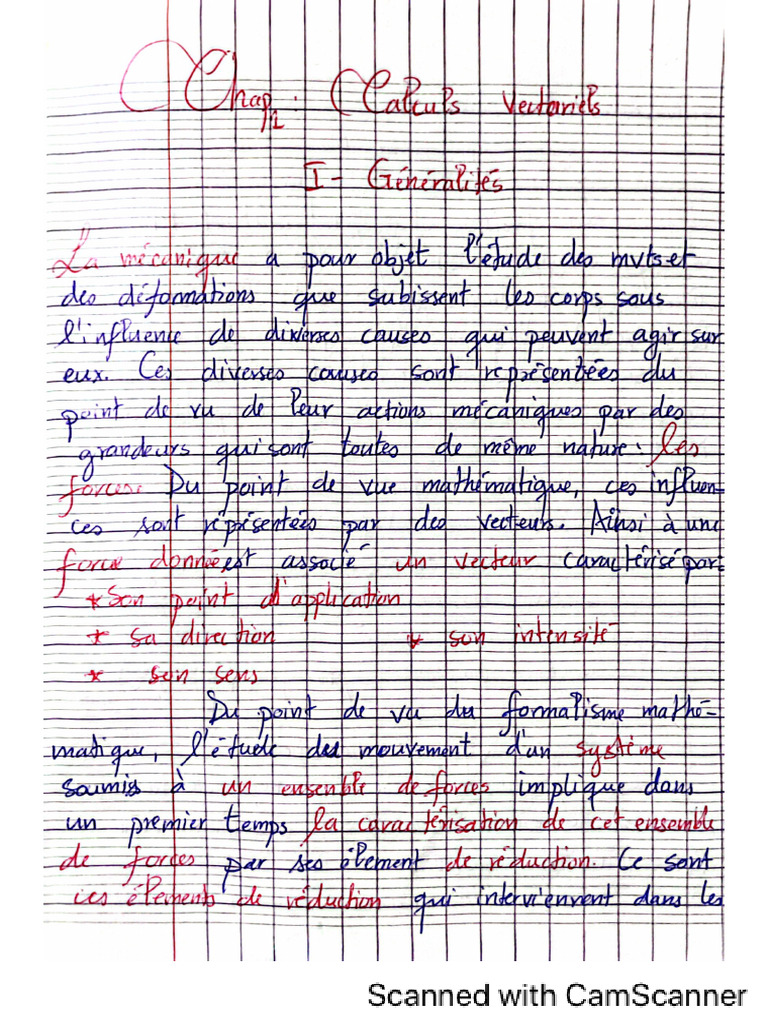 Chap1 : Calculs vectoriels
I - Généralités
La mécanique a pour objet l'étude des mvts et
des déformations que subissent les corps sous
l'influence de diverses causes qui peuvent agir sur
eux. Ces diverses causes sont représentées du
point de vu de leur actions mécaniques par des
grandeurs qui sont toutes de même nature : les
forces. Du point de vue mathématique, ces influen-
ces sont réprésentées par des vecteurs. Ainsi à une
force donnée, est associé un vecteur caractérisé par:
* Son point d'application
* sa direction * son intensité
* son sens
Du point de vu du formalisme mathé-
matique, l'étude des mouvement d'un système
soumis à un ensemble de forces implique dans
un premier temps la caractérisation de cet ensemble
de forces par ses élement de réduction. Ce sont
ces élements de réduction qui interviennent dans les
Scanned with CamScanner